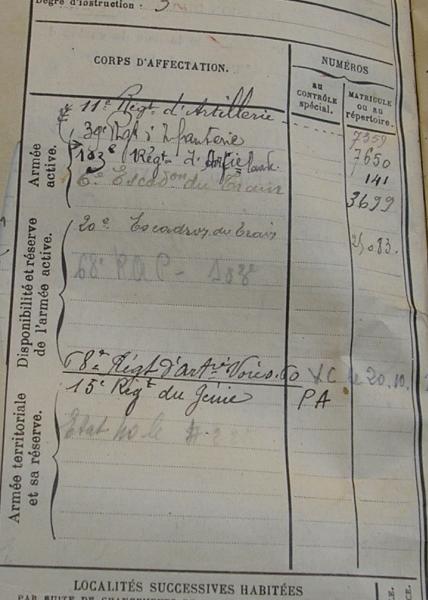 Degré d'instruction : 3
CORPS D'AFFECTATION.
NUMÉROS
AU CONTRÔLE spécial.
MATRICULE OU AU répertoire.
Armée active.
11e Régt d'Artillerie 7359
39e Rgt d'Infanterie 7650
103e Régt d'Artie lourde 141
6e Escadon du Train 3699
Disponibilité et réserve de l'armée active.
20e Escadron du train
68e
Armée territoriale et sa réserve.
68e Régt d'Artie Voie de 60 20.10.
15e Régt du Génie PA
LOCALITÉS SUCCESSIVES HABITÉES
PAR SUITE DE CHANGEMENTS